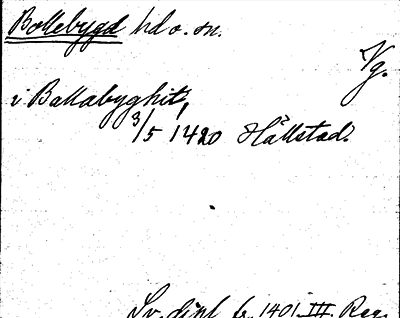 Bollebygd hd o. sn.
Vg.
i Ballabyghit,
3/5 1420 Hällstad.
Sv. dipl fr. 1401 III. Reg.